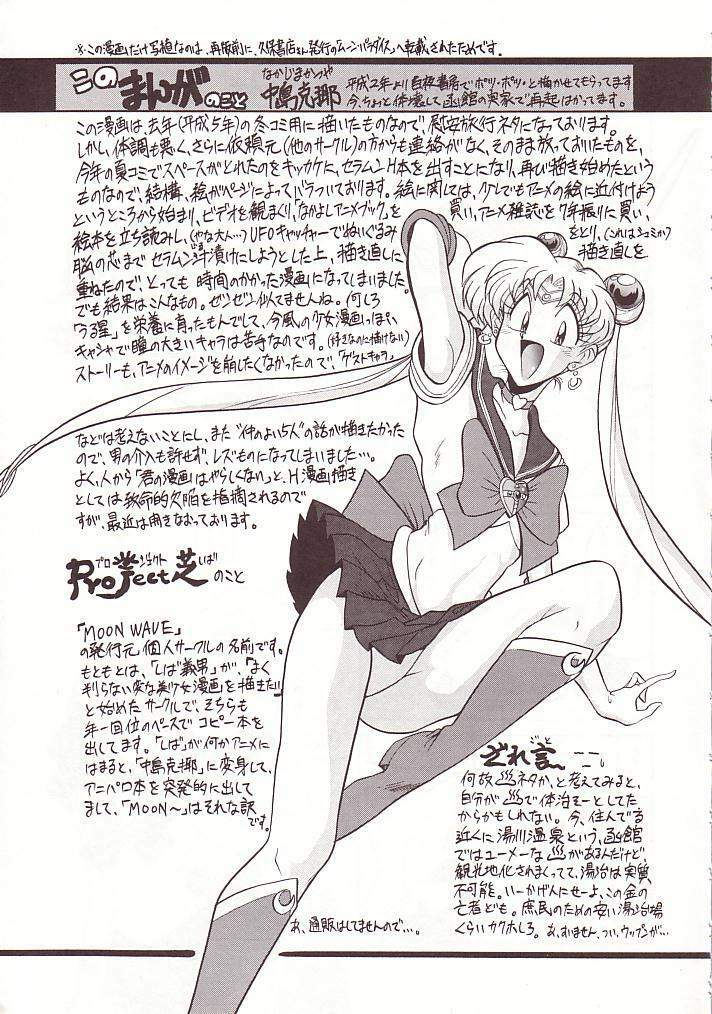 ※この漫画だけ写植なのは、再版前に、久保書店さん発行の「ムーンパラダイス」へ転載されたためです。
このまんがのこと
なかじまかつや
中島克耶
平成2年より白夜書房でポツ・ポツ・と描かせてもらってます
今、ちょっと体壊して函館の実家で再起はかってます。
この漫画は、去年(平成5年)の冬コミ用に描いたものなので、慰安旅行ネタになっております。
しかし、体調も悪く、さらに依頼元(他のサークル)の方からも連絡がなく、そのまま放っておいたものを、
今年の夏コミでスペースがとれたのをキッカケに、セラムンH本を出すことになり、再び描き始めたという
ものなので、結構、絵がページによってバラついております。絵に関しては、少しでもアニメの絵に近付けよう
というところから始まり、ビデオを観まくり、「なかよしアニメブック」を買い、アニメ雑誌を7年振りに買い、
絵本を立ち読みし、(やな大人…)UFOキャッチャーでぬいぐるみをとり、(これはシュミか)
脳の芯までセラムン汁漬けにしようとした上、描き直しに描き直しを
重ねたので、とっても時間のかかった漫画になってしまいました。
でも結果はこんなもの。ゼンゼン似てませんね。何しろ
「うる星」を栄養に育ったもんでして、今風の少女漫画っぽい
キャシャで瞳の大きいキャラは苦手なのです。(好きなのに描けない)
ストーリーも、アニメのイメージを崩したくなかったので、「ゲストキャラ」
などは考えないことにし、また“仲のよい5人”の話が描きたかった
ので、男の介入も許せず、レズものになってしまいました…。
よく、人から「君の漫画はやらしくない」と、H漫画描き
としては致命的欠陥を指摘されるので
すが、最近は開きなおっております。
プロジェクトしば
Project芝のこと
「MOON WAVE」
の発行元個人サークルの名前です。
もともとは、「しば義男」が「よく
判らない変な美少女漫画」を描きたい
と始めたサークルで、そちらも
年一回位のペースでコピー本を
出してます。「しば」が何かアニメに
はまると、「中島克耶」に変身して、
アニパロ本を突発的に出して
まして、「MOON〜」はそれな訳
です。
ざれ言
ごと
何故♨ネタか、と考えてみると、
自分が♨で体治そーとしてた
からかもしれない。今、住んでる
近くに湯川温泉という、函館
ではユーメーな♨があるんだけど、
観光地化されまくってて、湯治は実質
不可能。いーかげんにせーよ、この金の
亡者ども。庶民のための安い湯治場
くらいカクホしろ。あ、すいません、つい、ウップンが…
あ、通販はしてませんので…。